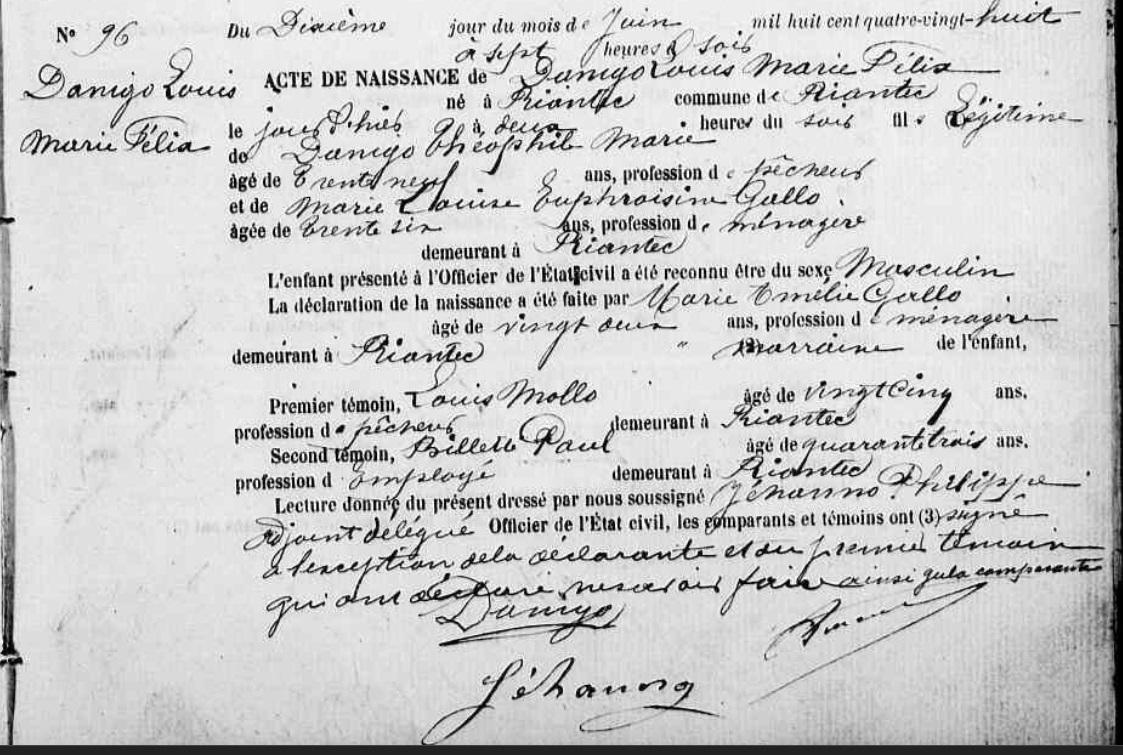 N° 96 Du Dixième jour du mois de Juin mil huit cent quatre-vingt-huit
à sept heures d soir
Danigo Louis
Marie Félix
ACTE DE NAISSANCE de Danigo Louis Marie Félix
né à Riantec commune de Riantec
le jour d'hier à deux heures du soir fils Légitime
de Danigo Théophile Marie
âgé de trente neuf ans, profession de pêcheur
et de Marie Louise Euphroisine Gallo
âgée de trente six ans, profession de ménagère
demeurant à Riantec
L'enfant présenté à l'Officier de l'État civil a été reconnu être du sexe Masculin
La déclaration de la naissance a été faite par Marie Emélie Gallo
âgé de vingt deux ans, profession de ménagère
demeurant à Riantec " marraine de l'enfant,
Premier témoin, Louis Mollo âgé de vingt Cinq ans.
profession de pêcheur demeurant à Riantec
Second témoin, Billette Paul âgé de quarante trois ans.
profession d Employé demeurant à Riantec
Lecture donnée du présent dressé par nous soussigné Jéhanno Philippe
Adjoint délégué Officier de l'État civil, les comparants et témoins ont (3) signé
à l'exception de la déclarante et du premier témoin
qui ont déclaré ne savoir faire ainsi que la comparante
Danigo
Jéhanno